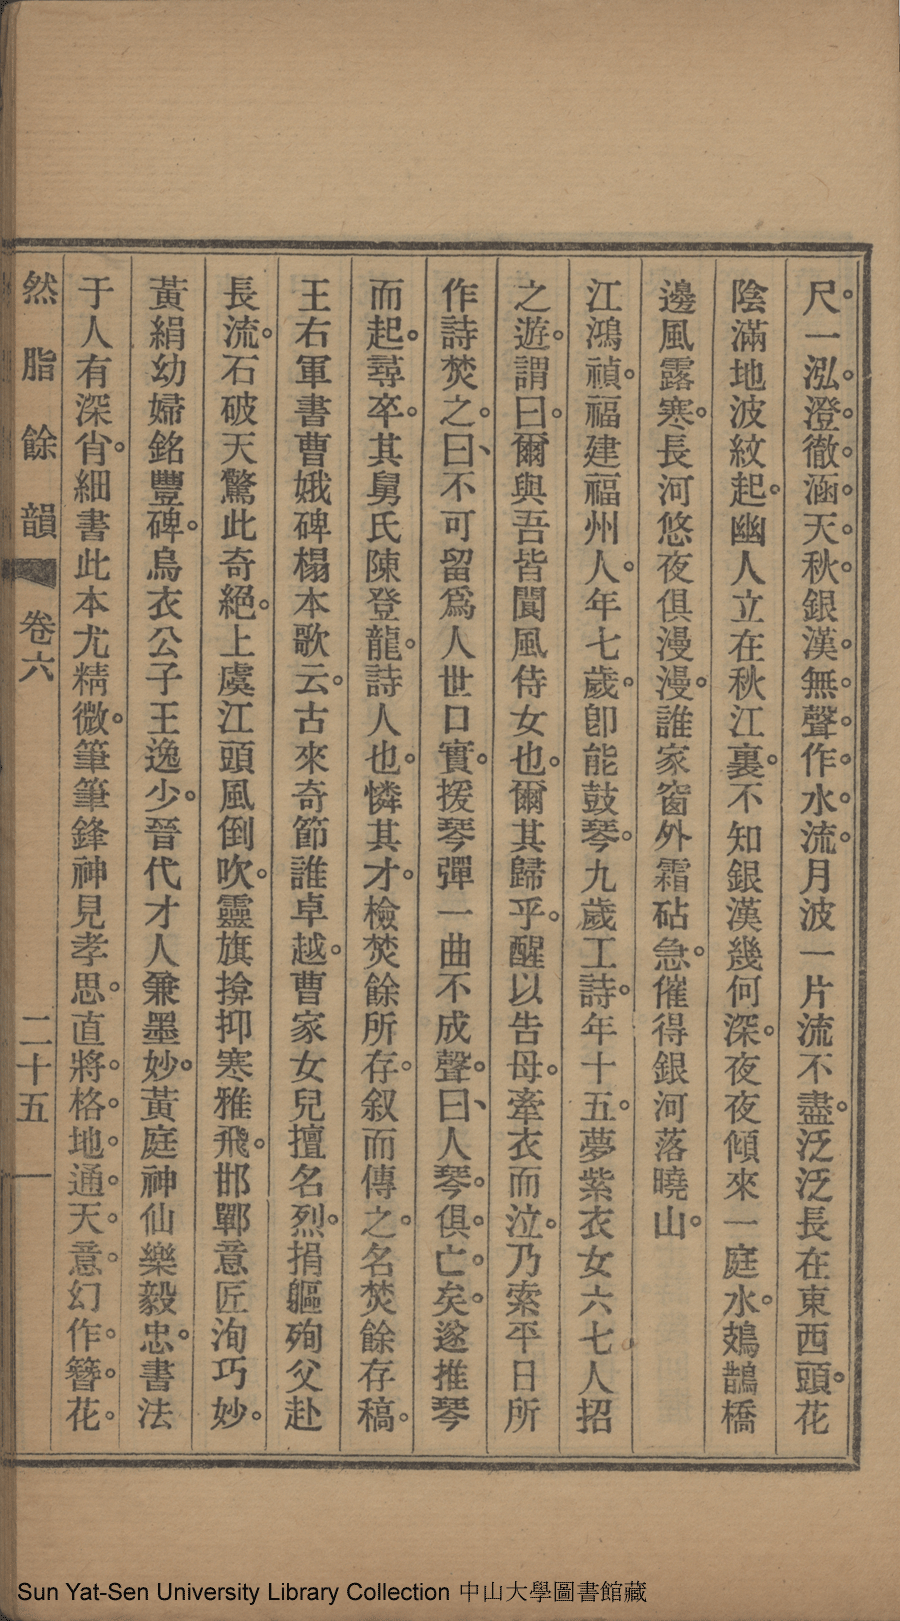 尺。一泓。澄。徹。涵。天。秋。銀漢。無。聲。作。水。流。月波一片流不盡。泛泛長在東西頭。花
陰滿地波紋起。幽人立在秋江裏。不知銀漢幾何深。夜夜傾來一庭水。鳷鵲橋
邊風露寒。長河悠夜俱漫漫。誰家窗外霜砧急。催得銀河落曉山。
江鴻禎。福建福州人。年七歲。卽能鼓琴。九歲工詩。年十五。夢紫衣女六七人招
之遊。謂曰。爾與吾皆閬風侍女也。爾其歸乎。醒以告母。牽衣而泣。乃索平日所
作詩焚之。曰、不可留爲人世口實。援琴彈一曲不成聲。曰、人琴。俱。亡。矣。遂推琴
而起。尋卒。其舅氏陳登龍。詩人也。憐其才。檢焚餘所存。叙而傳之。名焚餘存稿。
王右軍書曹娥碑榻本歌云。古來奇節誰卓越。曹家女兒擅名烈。捐軀殉父赴
長流。石破天驚此奇絕。上虞江頭風倒吹。靈旗揜抑寒雅飛。邯鄲意匠洵巧妙。
黃絹幼婦銘豐碑。烏衣公子王逸少。晉代才人兼墨妙。黃庭神仙樂毅忠。書法
于人有深肖。細書此本尤精微。筆筆鋒神見孝思。直將。格。地。通。天。意。幻作。簪。花。
然脂餘韻 卷六 二十五
Sun Yat-Sen University Library Collection 中山大學圖書館藏